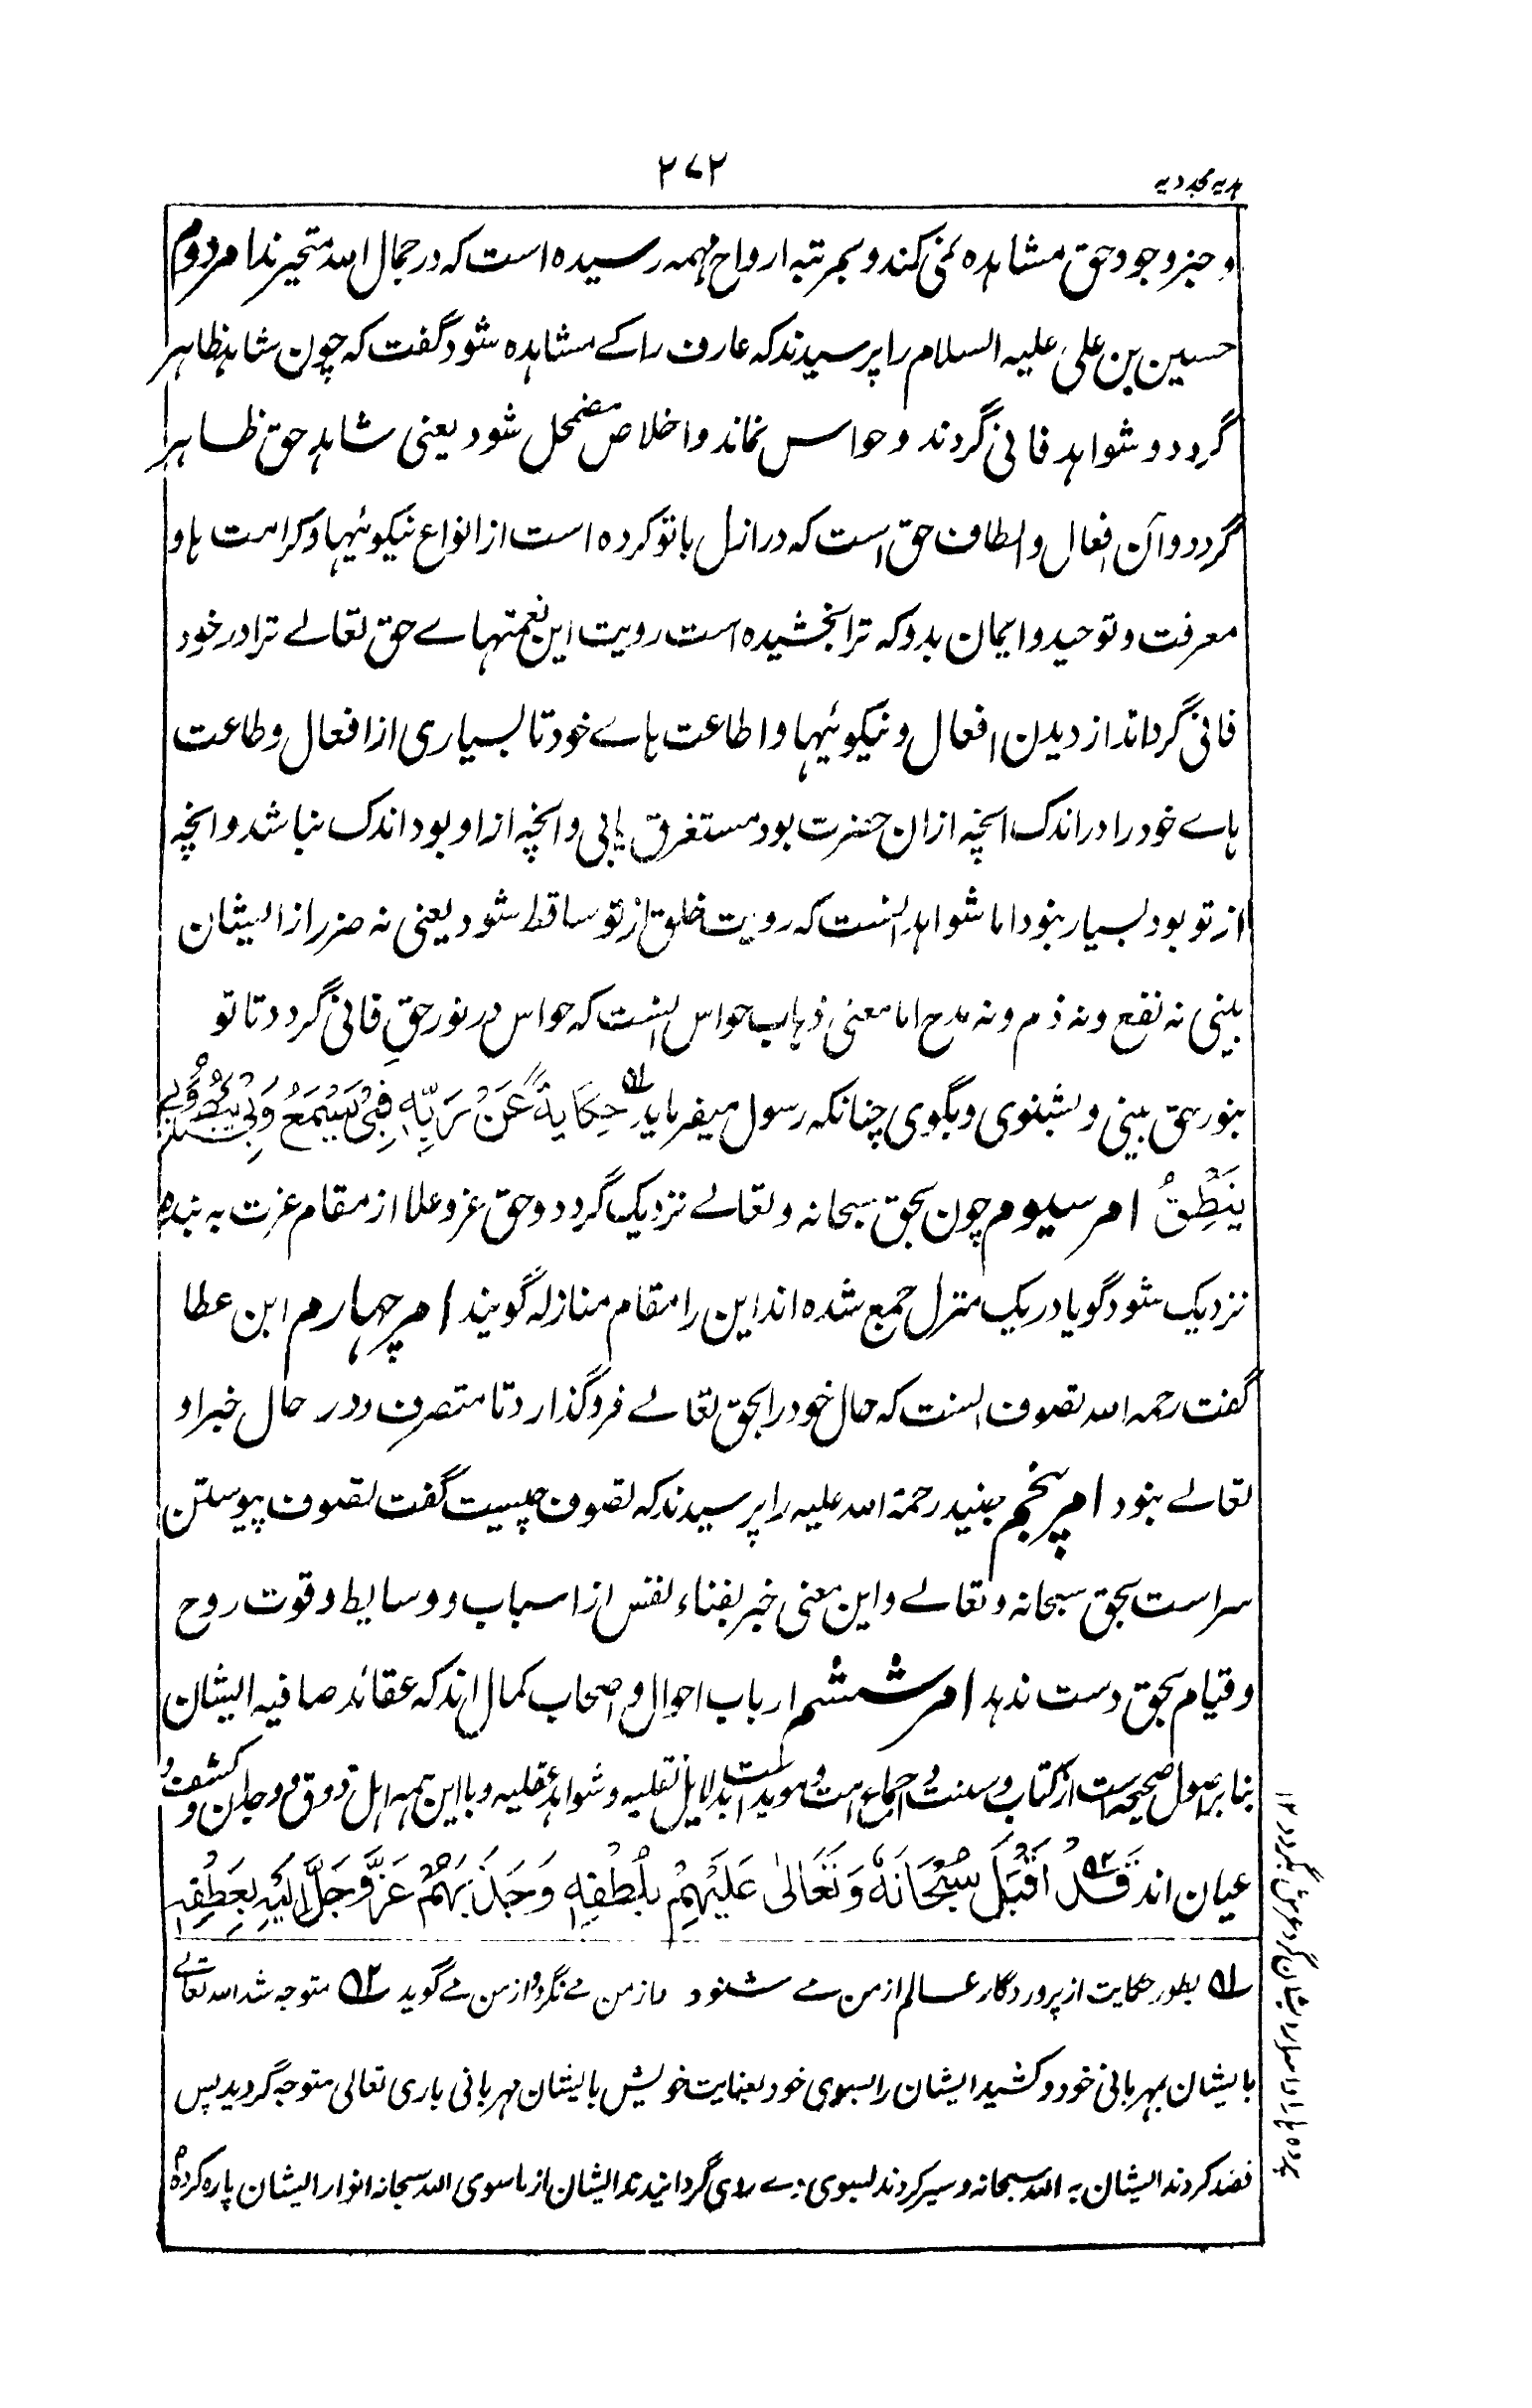 ہدیہ مجددیہ
۲۷۲
و جز وجود حق مشاہدہ نمی کند و بمرتبہ ارواح مہیمہ رسیدہ است کہ در جمال اللہ متحیرند امر دوم
حسین بن علی علیہ السلام را پرسیدند کہ عارف را کے مشاہدہ شود گفت کہ چون شاہد ظاہر
گردد و شواہد فانی گردند و حواس نماند و اخلاص مضمحل شود یعنی شاہد حق ظاہر
گردد و آن افعال و الطاف حق است کہ در ازل با تو کردہ است از انواع نیکوئیہا و کرامت ہا و
معرفت و توحید و ایمان بدو کہ ترا بخشیدہ است رویت این نعمتہاے حق تعالے ترا در خود
فانی گرداند از دیدن افعال و نیکوئیہا و اطاعت ہاے خود تا بسیاری از افعال و طاعت
ہاے خود را در اندک انچہ ازان حضرت بود مستغرق یابی و انچہ ازاو بود اندک نباشد و انچہ
از تو بود بسیار نبود اما شواہد اینست کہ رویت خلق از تو ساقط شود یعنی نہ ضرر از ایشان
بینی نہ نفع و نہ ذم و نہ مدح اما معنی ذہاب حواس اینست کہ حواس در نور حق فانی گردد تا تو
بنور حق بینی و بشنوی و بگوی چنانکہ رسول میفرماید ۱ حِكَايَةً عَنْ رَبِّهِ فَبِيْ يَسْمَعُ وَبِيْ يُبْصِرُ وَبِيْ
يَنْطِقُ امر سیوم چون بحق سبحانہ و تعالے نزدیک گردد و حق عز و علا از مقام عزت بہ بندہ
نزدیک شود گویا در یک منزل جمع شدہ اند این را مقام منازلہ گویند امر چہارم ابن عطا
گفت رحمہ اللہ تصوف اینست کہ حال خود را بحق تعالے فروگذارد تا متصرف در حال جز او
تعالے نبود امر پنجم جنید رحمۃ اللہ علیہ را پرسیدند کہ تصوف چیست گفت تصوف پیوستن
سر است بحق سبحانہ و تعالے و این معنی جز بفناء نفس از اسباب و وسایط و قوت روح
و قیام بحق دست ندہد امر ششم ارباب احوال و اصحاب کمال اند کہ عقائد صافیہ ایشان
بنا بر اصول صحیحہ است از کتاب و سنت و اجماع امت و موید است بدلایل نقلیہ و شواہد عقلیہ و با این ہمہ اہل ذوق و وجدان و کشف و
عیان اند ۲ قَدْ اَقْبَلَ سُبْحَانَهٗ وَتَعَالیٰ عَلَيْهِمْ بِلُطْفِهٖ وَجَذَبَهُمْ عَزَّ وَجَلَّ اِلَيْهِ بِعَطْفِهٖ
۱ بطور حکایت از پروردگار عالم از من مے شنود و از من مے نگرد و از من مے گوید ۲ متوجہ شد اللہ تعالے
بایشان بمہربانی خود و کشید ایشان را بسوی خود بعنایت خویش بایشان مہربانی باری تعالی متوجہ گردید پس
قصد کردند ایشان بہ اللہ سبحانہ و سیر کردند بسوی وے روی گردانیدند ایشان از ماسوی اللہ سبحانہ انوار ایشان پارہ کردہ